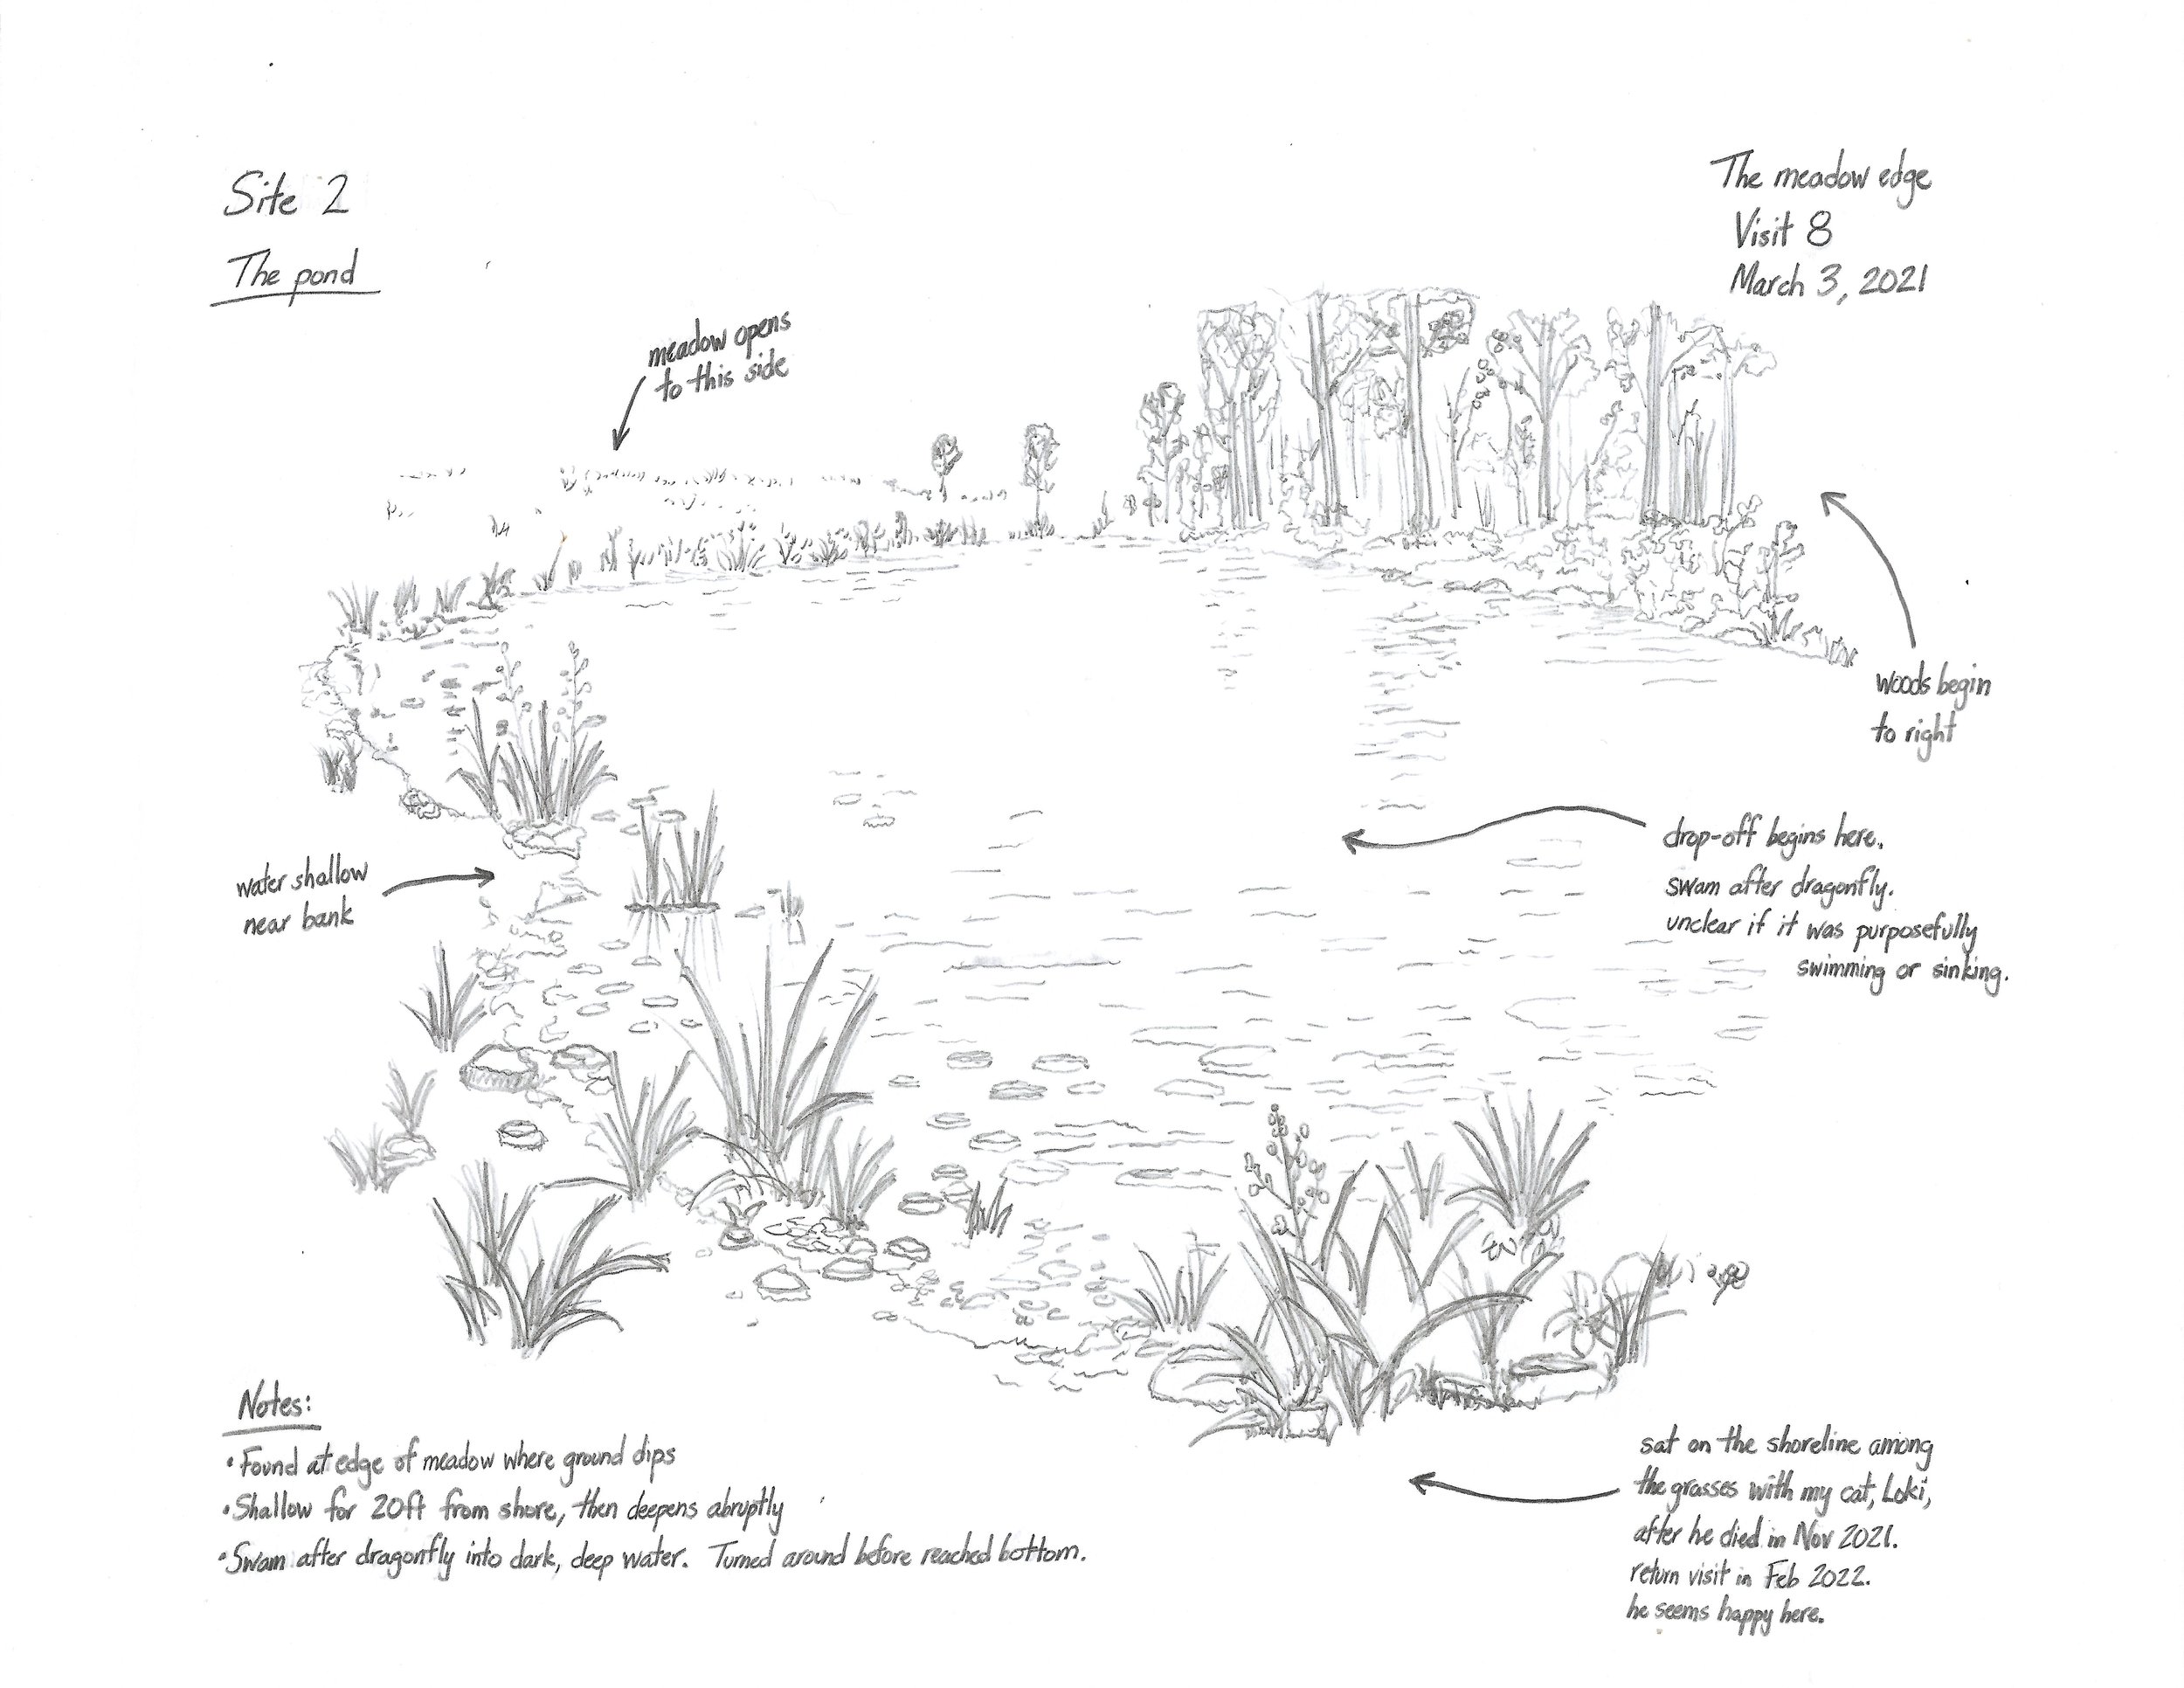 Site 2
The pond
The meadow edge
Visit 8
March 3, 2021
meadow opens
to this side
woods begin
to right
water shallow
near bank
drop-off begins here.
swam after dragonfly.
unclear if it was purposefully
swimming or sinking.
Notes:
• Found at edge of meadow where ground dips
• Shallow for 20ft from shore, then deepens abruptly
• Swam after dragonfly into dark, deep water. Turned around before reached bottom.
sat on the shoreline among
the grasses with my cat, Loki,
after he died in Nov 2021.
return visit in Feb 2022.
he seems happy here.